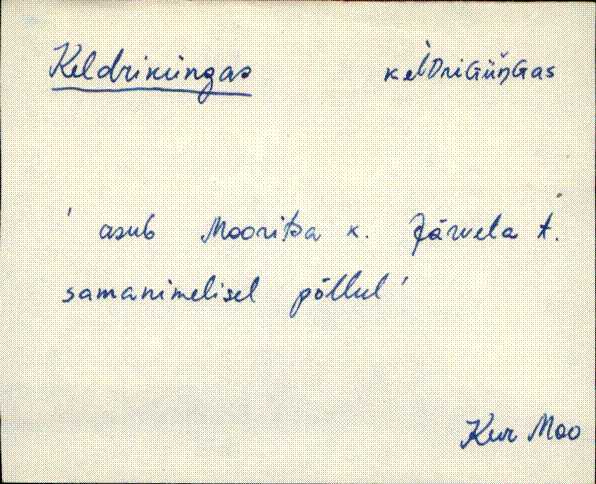 Keldriküngas keʹlDriGüŋ̆Gas
' asub Mooritsa k. Järvela t.
samanimelisel põllul '
Kur Moo